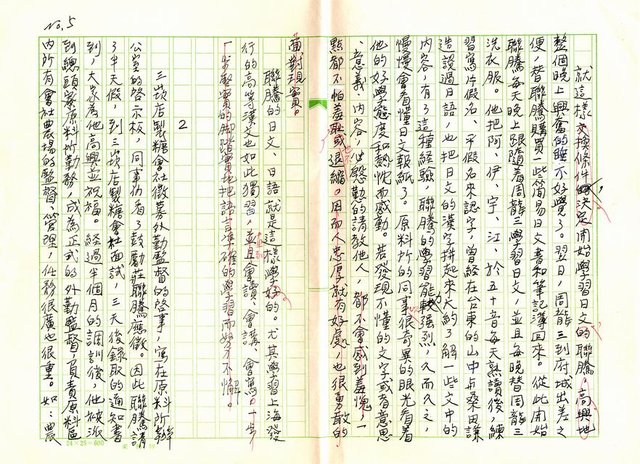 No. 5
就這樣交換條件決定開始學習日文的聯騰,高興地
整個晚上興奮的睡不好覺了。翌日,周龍三到府城出差之
便,替聯騰購買一些簡易日文書和筆記簿回來。從此開始
聯騰每天晚上跟隨着周龍三學習日文,並且每晚替周龍三
洗衣服。他把阿、伊、宇、江、於五十音每天熟讀後,練
習寫片假名、平假名來認字,曾經在台東的山中与桑田謀
造談過日語,也把日文的漢字拼起來大約了解一些文中的
內容,有了這種經驗,聯騰的學習能力較強烈,久而久之,
慢慢會看懂日文報紙了。原料所的同事很奇異的眼光看着
他的好學態度和熱忱而感動。若發現不懂的文字或者意思
、意義、內容,他懇勤的請教他人,都不會感到羞愧,一
點都不怕羞恥或退縮。因而人忠厚就有好處,也很勇敢的
面對現實。
聯騰的日文、日語就是這樣學好的。尤其學習上海發
行的高等漢文也如此獨習,並且會讀、會講、會寫。一步
一步務實的脚踏實地把語言準確的學習而努力不懈。
2
三崁店製糖會社徵募外勤監督的啓事,寫在原料所辦
公室的啓示板,同事們看了鼓勵莊聯騰應徵。因此聯騰請
了半天假,到三崁店製糖會社面試,三天後錄取的通知書
到,大家為他高興並祝福。經過半個月的調訓後,他被派
到總頭寮原料所勤務,成為正式的外勤監督,負責原料區
內所有會社農場的監督、管理,任務很廣也很重。如:農